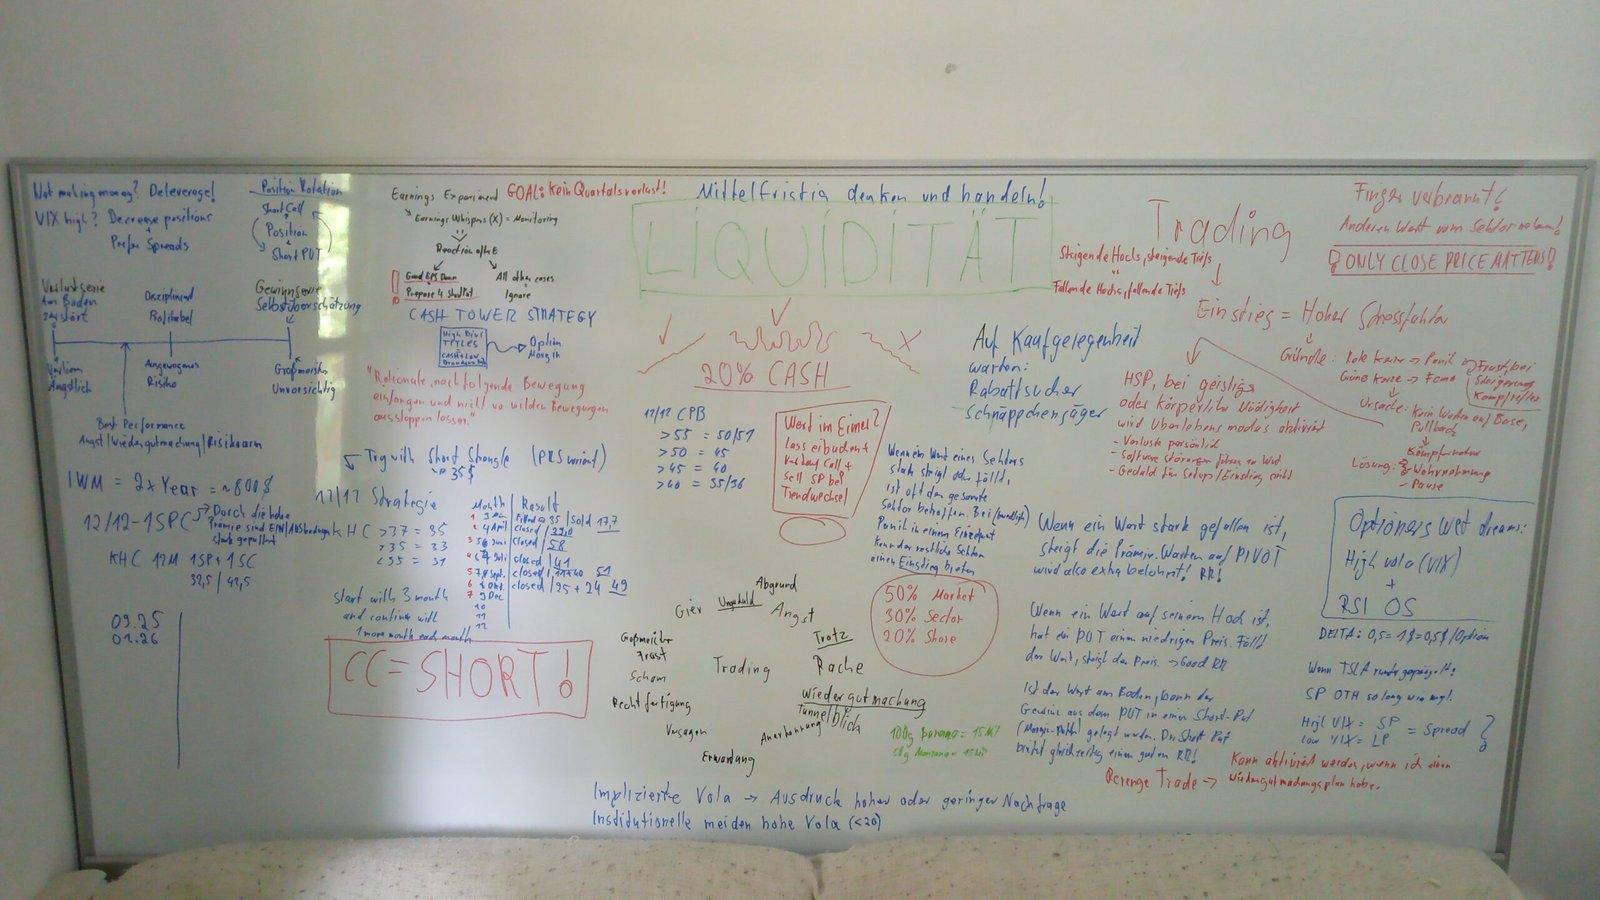 Not making money? Deleverage!
VIX high? Decrease positions
Prefer Spreads
Position Rotation
Short Call
Position
Short PUT
Verlustserie
Am Boden
zerstört
Diszipliniert
Profitabel
Gewinnserie
Selbstüberschätzung
Verlieren
Ängstlich
Ausgewogenes
Risiko
Großmeister
Unvorsichtig
Best Performance
Angst/Wiedergutmachung/Risikoarm
IWM = 2x Year = ~800$
12/12-1SPC
Durch die hohe
Prämie sind EIN/AUSbuchungen
stark gepuffert
KHC 12M 1SP + 1SC
32,5 / 42,5
09.25
01.26
Earnings Experiment
GOAL: Kein Quartalsverlust!
Earnings Whispers (X) = Monitoring
Reaction after E
Good EPS Down
Prepare 4 ShortPut
All other cases
Ignore
CASH TOWER STRATEGY
HIGH DIVI
TITLES
Option
Margin
"Rationale, nachfolgende Bewegung
einfangen und nicht von wilden Bewegungen
ausstoppen lassen."
Try with Short Strangle
35$
12/12 Strategie
KHC >37 = 35
>35 = 33
<35 = 31
start with 3 month
and continue with
1 more month each month
Month
Result
1
Filled @ 35 / sold 17,7
2 4 April closed / 29,0
3 5 6 Juni closed / 58
closed / 41
5 7 8 Sept. closed 51
6
closed / 25 + 24 49
7 9 Dec
10
11
12
CC = SHORT!
Mittelfristig denken und handeln!
LIQUIDITÄT
20% CASH
12/12 CPB
>55 = 50/51
>50 = 45
>45 = 40
>40 = 35/36
Wert im Eimer?
Lass einbuchen +
Call +
Sell SP bei
Trendwechsel
Wenn ein Wert eines Sektors
stark steigt oder fällt,
ist oft der gesamte
Sektor betroffen. Bei
Panik in einem Einzelwert
kann der restliche Sektor
einen Einstieg bieten
50% Market
30% Sector
20% Share
Abgrund
Gier
Ungeduld
Angst
Großmeister
Frust
Scham
Trotz
Trading
Rache
Rechtfertigung
Wiedergutmachung
Tunnelblick
Versagen
Anerkennung
Erwartung
100g Banana = 15 Min
Implizierte Vola → Ausdruck hoher oder geringer Nachfrage
Institutionelle meiden hohe Vola (<20)
Trading
Steigende Hochs, steigende Tiefs
vs
Fallende Hochs, fallende Tiefs
Auf Kaufgelegenheit
warten:
Rabattsucher
Schnäppchenjäger
Finger verbrannt?
Anderen Wert vom Sektor nehmen!
! ONLY CLOSE PRICE MATTERS!
Einstieg = Hoher Stressfaktor
Gründe: Rote Kerze → Panik
Grüne Kerze → Fomo
Frust, bei
Steigerung
Ursache: Kein Warten auf Base,
Pullback
Kampfmodus
Lösung: Wahrnehmung
- Pause
HSP, bei geistiger
oder körperlicher Müdigkeit
wird Überlebensmodus aktiviert
- Verluste persönlich
- Software störungen führen zu Wut
- Geduld für Setup/Einstieg sinkt
Wenn ein Wert stark gefallen ist,
steigt die Prämie. Warten auf PIVOT
wird also extra belohnt! RR!
Wenn ein Wert auf seinem Hoch ist,
hat ein PUT einen niedrigen Preis. Fällt
der Wert, steigt der Preis. → Good RR
Ist der Wert am Boden, kann der
Gewinn aus dem PUT in einen Short-Put
gelegt werden. Der Short Put
bietet gleichzeitig einen guten RR!
Revenge Trade → Kann aktiviert werden, wenn ich einen
Wiedergutmachungsplan habe.
Optioneers wet dreams:
High vola (VIX)
+
RSI OS
DELTA: 0,5 = 1$ = 0,5$/Option
Wenn TSLA
SP OTM so long wie mgl.
High VIX = SP
Low VIX = LP
= Spread ?